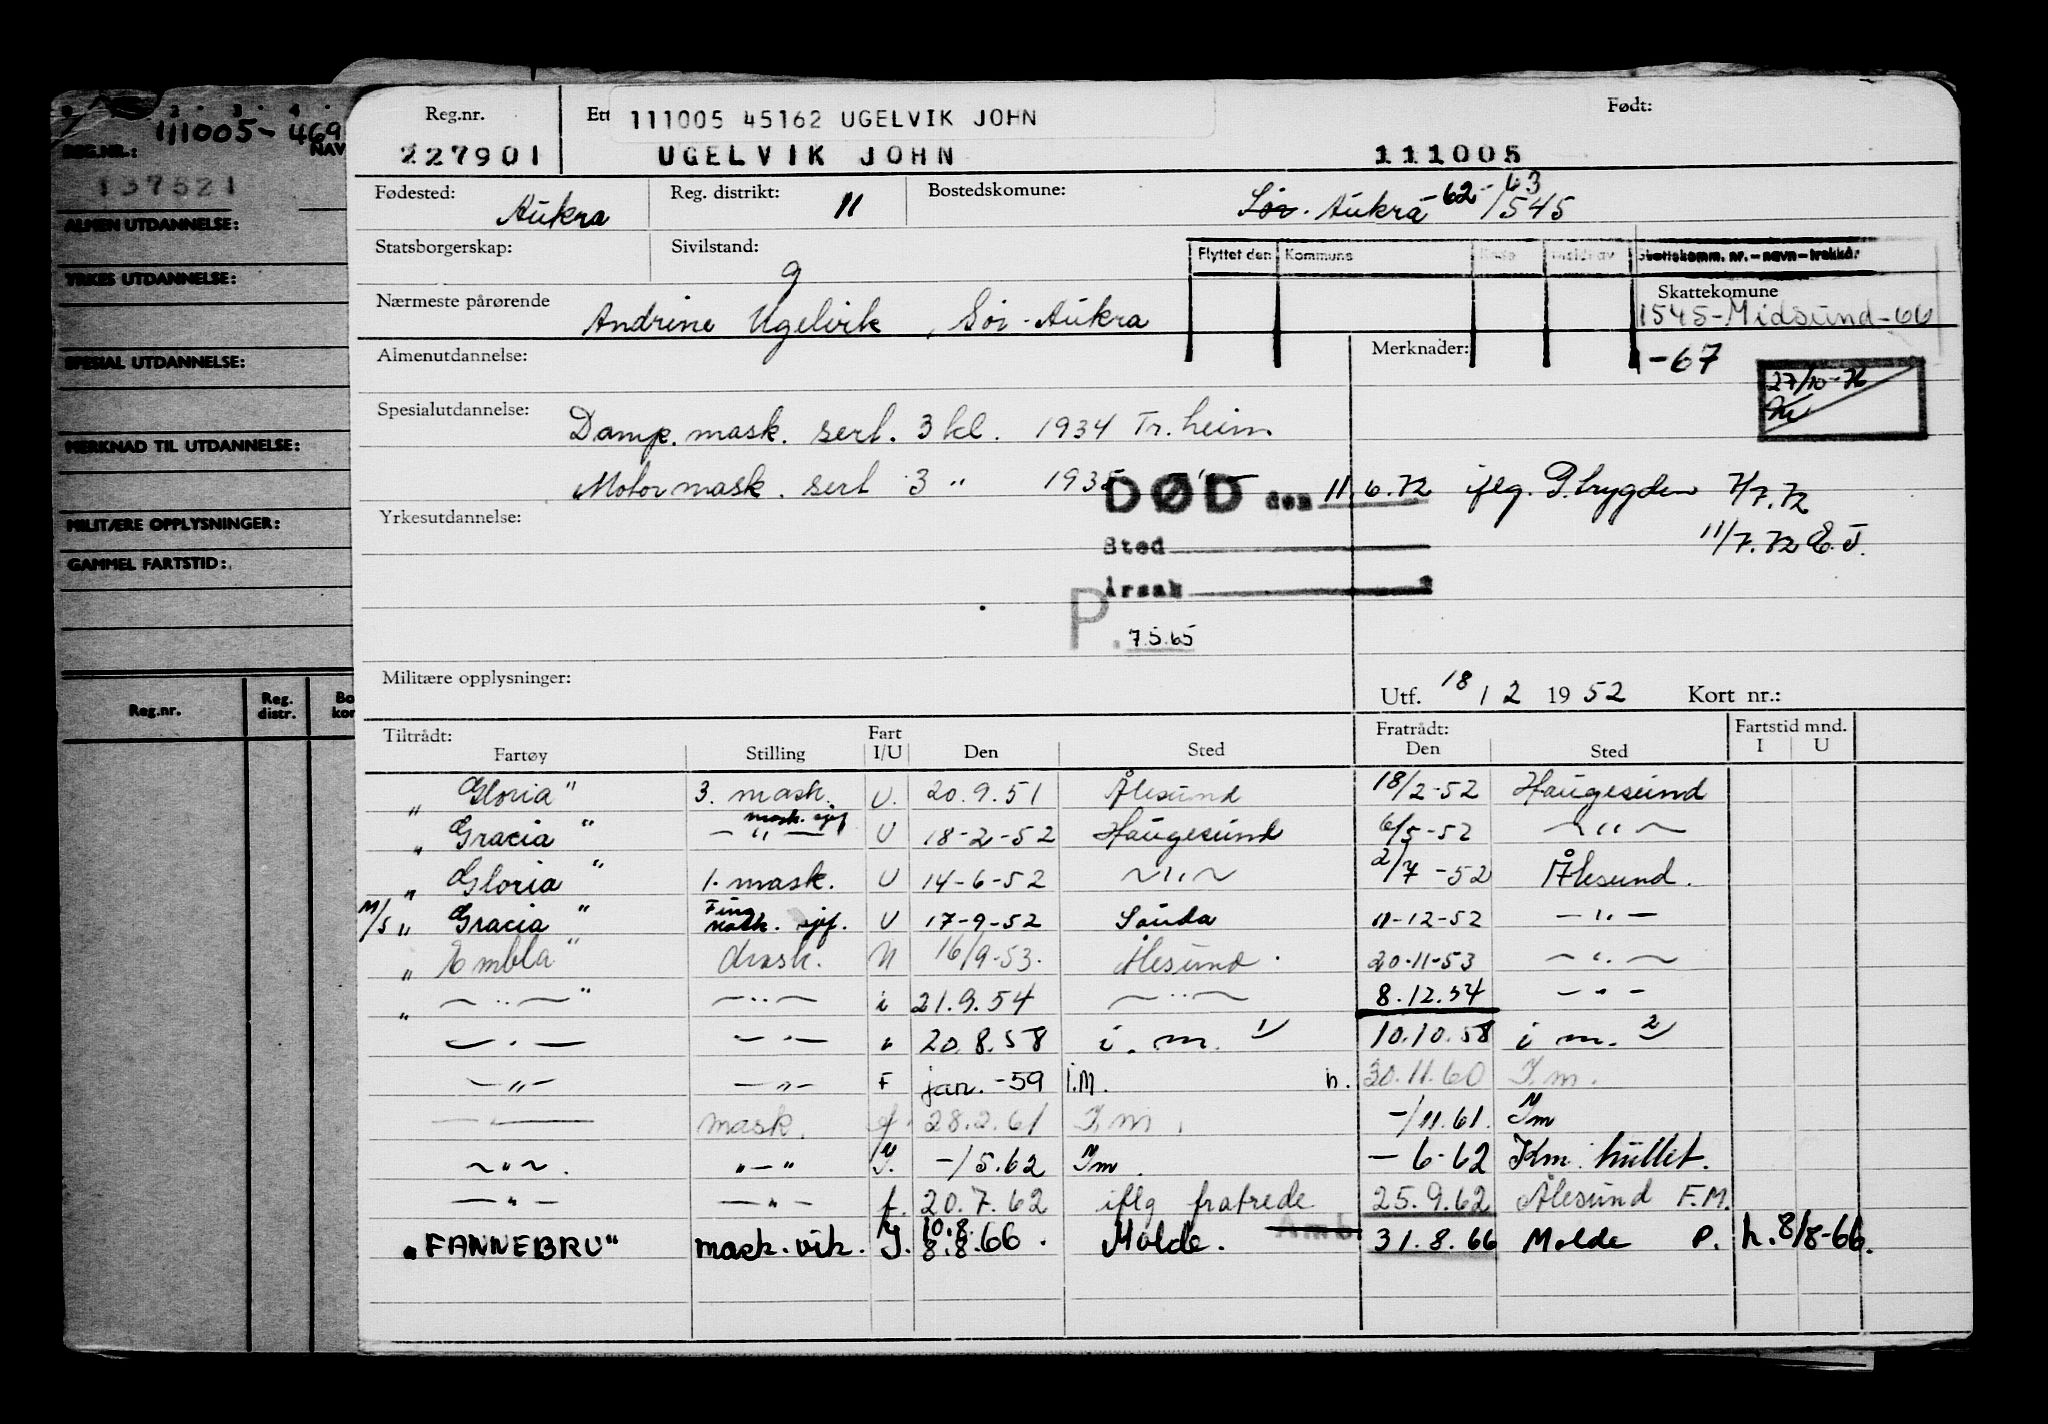 111005-469
REG.NR.: NAV
137521
ALMEN UTDANNELSE:
YRKES UTDANNELSE:
SPESIAL UTDANNELSE:
MERKNAD TIL UTDANNELSE:
MILITÆRE OPPLYSNINGER:
GAMMEL FARTSTID:
Reg.nr. Reg. distr. Bo kor
Reg.nr. Ett 111005 45162 UGELVIK JOHN Født:
227901 UGELVIK JOHN 111005
Fødested: Aukra Reg. distrikt: 11 Bostedskomune: Sør. Aukra -62-63 /545
Statsborgerskap: Sivilstand: g
Flyttet den Kommune Skattekomm. nr.-navn-trekkår
Nærmeste pårørende Andrine Ugelvik, Sør-Aukra
Skattekomune
1545-Midsund-66
-67
Almenutdannelse: Merknader:
27/10-76
Spesialutdannelse: Damp. mask. sert. 3 kl. 1934 Tr.heim
Motormask. sert 3 " 1935
DØD den 11.6.72 iflg. P.trygden 7/7.72
11/7.72 E.T.
Yrkesutdannelse:
Sted
Årsak
P. 7.5.65
Militære opplysninger:
Utf. 18/2 1952 Kort nr.:
Tiltrådt: Fart Fratrådt: Fartstid mnd.
Fartøy Stilling I/U Den Sted Den Sted I U
"Gloria" 3. mask. U. 20.9.51 Ålesund 18/2-52 Haugesund
"Gracia" - " - mask. sjef U 18-2-52 Haugesund 6/5-52 - " -
"Gloria" 1. mask. U 14-6-52 - " - 2/7-52 Ålesund.
M/S "Gracia" mask. sjef. U 17-9-52 Sauda 11-12-52 - " -
"Embla" mask. N 16/9-53. Ålesund. 20-11-53 - " -
" - " - " - " - i 21.9.54 - " - 8.12.54 - " -
- " - - " - " 20.8.58 i. m. 1/ 10.10.58 i m. 2/
- " - - " - F jan. -59 I.M. h. 30.11.60 I.m.
- " - mask. f. 28.2.61 I.m. -/11.61. Im
- " -. " - " I. -/5.62 Im. -6-62 Km. hullet.
- " - - " - f. 20.7.62 iflg fratrede 25.9.62 Ålesund F.M.
"FANNEBRU" mask.vik. I. 10.8. 8.8.66. Molde. 31.8.66 Molde P. h.8/8-66.